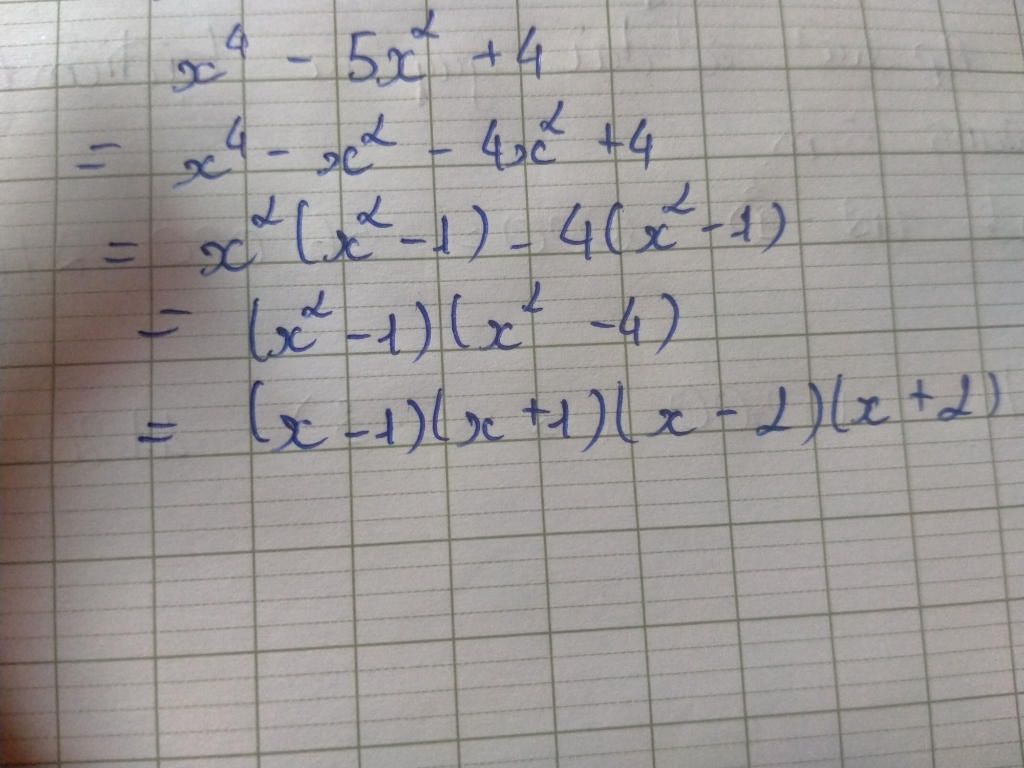 x⁴ - 5x² + 4
= x⁴ - x² - 4x² + 4
= x²(x² - 1) - 4(x² - 1)
= (x² - 1)(x² - 4)
= (x - 1)(x + 1)(x - 2)(x + 2)